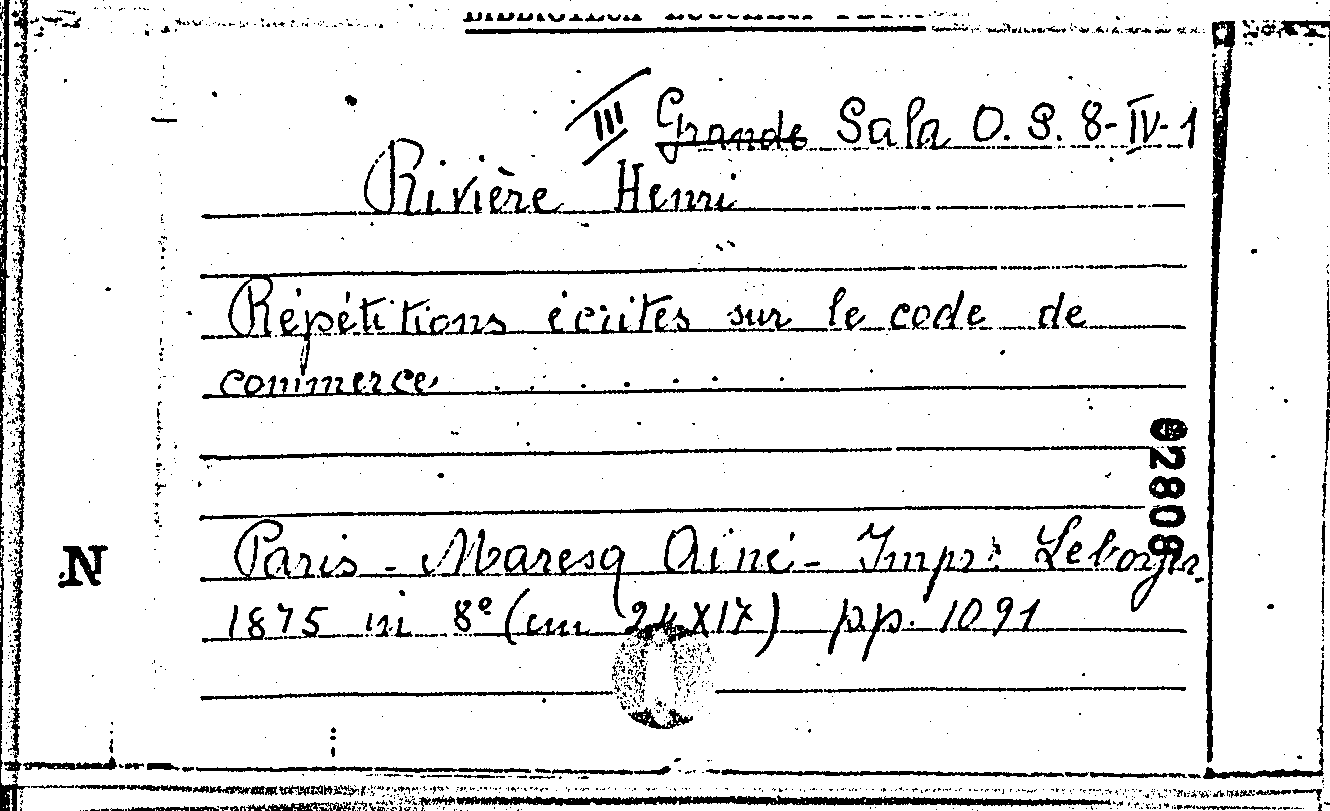 III Grande Sala O. S. 8-IV-1
Rivière Henri
Répétitions écrites sur le code de
commerce . . . . . . .
02808
N
Paris - Maresq Ainé - Impr:
1875 in 8° (cm 24X17) pp. 1091